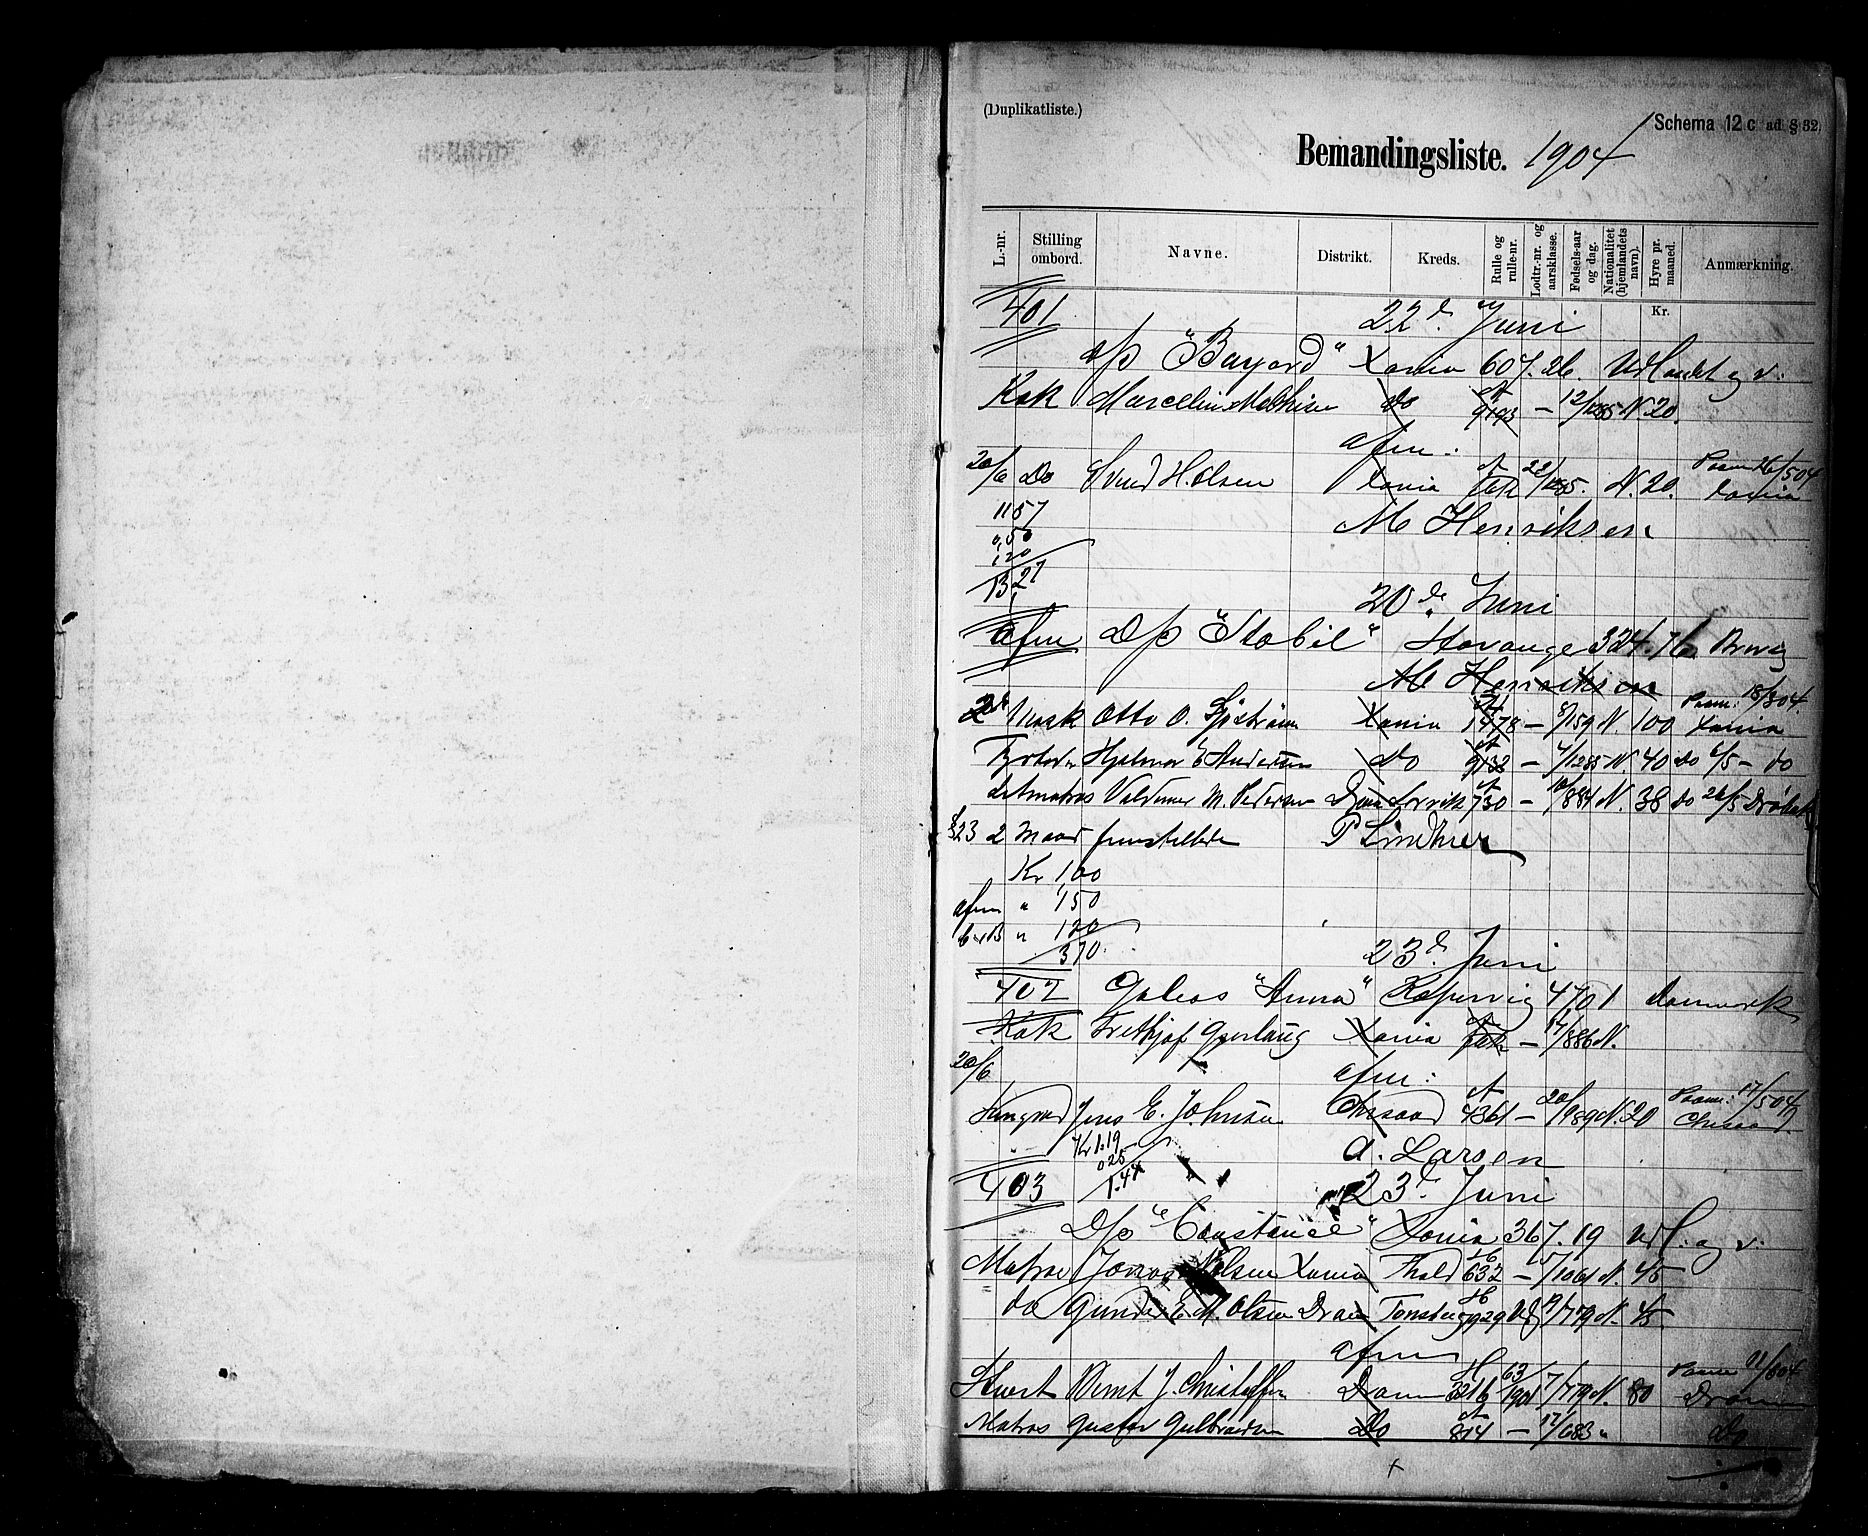 (Duplikatliste.)
Schema 12 c ad § 32.
Bemandingsliste. 1904
L.-nr. Stilling ombord. Navne. Distrikt. Kreds. Rulle og rulle-nr. Lodtr.-nr. og aarsklasse. Fødsels-aar og dag. Nationalitet (hjemlandets navn). Hyre pr. maaned. Anmærkning.
Kr.
401 22d. Juni
D/s "Bayard" Xania 607.26 Udlandet og v:
Kok Marcelius Mathisen do A 9193 — 12/1285 N. 20.
afm:
20/6 Do Svend H. Olsen Xania A 22/1285. N. 20. Paam 26/5 04 Xania
1157
0,50
120
1327
M Henriksen
20de Juni
afm D/s "Stabil" Stavanger 324.76 Brevig
M Henriksen
2den Mask Otto O. Sjøstrøm Xania A 1478 — 8/159 N. 100 Paam: 18/3 04. Xania
Fyrbøder Hjalmar E Andersen do A 9132 — 7/1285 N. 40 do 6/5 — do
Letmatros Valdemar M. Pedersen Dram Larvik A 730 — 10/884 N. 38 do 26/5 Drøbak
§23 2 Maan P Lindtner
Kr 1,00
afm " 150
" 120
370.
23d. Juni
402 Galeas "Anna" Kopervig 4701 Danmark
Kok Frithjof Gjerlaug Xania A — 17/886 N.
20/6 afm:
Jungmd Jens E. Johnsen Chrsand A 4361 — 20/989 N. 20 Paam: 17/5 04 Chrsand
Kr 1.19
025
1.44
A. Larsen
403 23d. Juni
D/s "Constance" Xania 367.19 Udl. og v:
Matros Jonas Nilsen Xania Thald H 632 — 15/1061 N. 45
do Gunder E. M. Olsen Dram Tønsberg H 7929 Ud 9/779 N. 45.
afm
Stuert Bernt J. Christoffersen Dram H 3216 63/1901 7/779 N. 80 Paam 11/6 04 Dramm
Matros Gustav Gulbrandsen Do A 814 — 17/683 " do